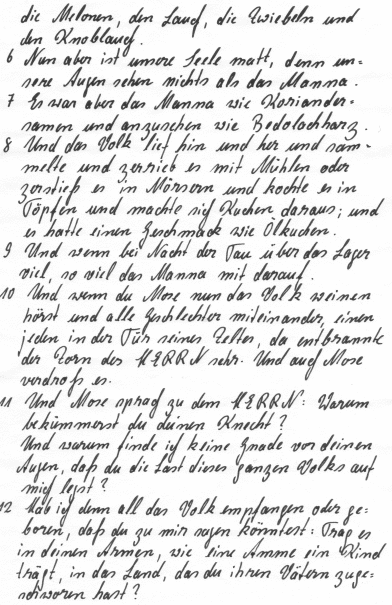 die Melonen, den Lauch, die Zwiebeln und
den Knoblauch.
6 Nun aber ist unsere Seele matt, denn un=
sere Augen sehen nichts als das Manna.
7 Es war aber das Manna wie Koriander=
samen und anzusehen wie Bedolachharz.
8 Und das Volk lief hin und her und sam=
melte und zerrieb es mit Mühlen oder
zerstieß es in Mörsern und kochte es in
Töpfen und machte sich Kuchen daraus; und
es hatte einen Geschmack wie Ölkuchen.
9 Und wenn bei Nacht der Tau über das Lager
viel, so viel das Manna mit darauf.
10 Und wenn du Mose nun das Volk weinen
hörst und alle Geschlechter miteinander, einen
jeden in der Tür seines Zeltes, da entbrannte
der Zorn des HERRN sehr. Und auch Mose
verdroß es.
11 Und Mose sprach zu dem HERRN: Warum
bekümmerst du deinen Knecht?
Und warum finde ich keine Gnade vor deinen
Augen, daß du die Last dieses ganzen Volks auf
mich legst?
12 Hab ich denn all das Volk empfangen oder ge=
boren, daß du zu mir sagen könntest: Trag es
in deinen Armen, wie eine Amme ein Kind
trägt, in das Land, das du ihren Vätern zuge=
schworen hast?